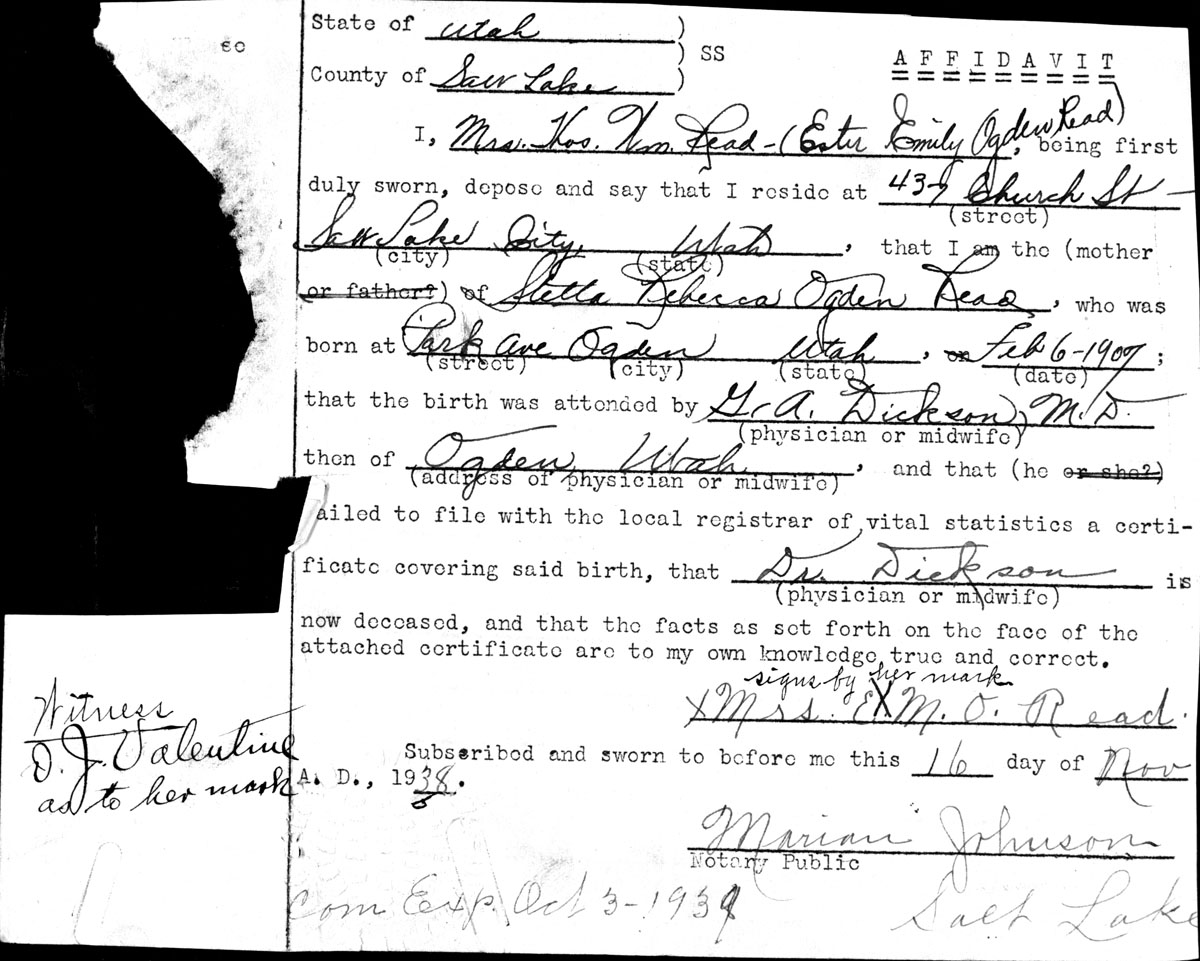 State of Utah )
) SS
County of Salt Lake )
AFFIDAVIT
I, Mrs. Thos. Wm. Read - (Ester Emily Ogden Read), being first
duly sworn, depose and say that I reside at Church St
(street)
Salt Lake City, Utah, that I am the (mother
(city) (state)
or father?) of Stella Rebecca Ogden Read, who was
born at Park Ave Ogden Utah, on Feb 6-1907;
(street) (city) (state) (date)
that the birth was attended by G. A. Dickson, M.D.
(physician or midwife)
then of Ogden Utah, and that (he or she?)
(address of physician or midwife)
ailed to file with the local registrar of vital statistics a certi-
ficate covering said birth, that Dr. Dickson is
(physician or midwife)
now deceased, and that the facts as set forth on the face of the
attached certificate are to my own knowledge true and correct.
signs by her mark
X Mrs. E X M. O. Read.
Witness
O. J. Valentine
as to her mark
Subscribed and sworn to before me this 16 day of Nov
A. D., 1938.
Marian Johnson
Notary Public
Com Exp. Oct 3-1939
Salt Lake